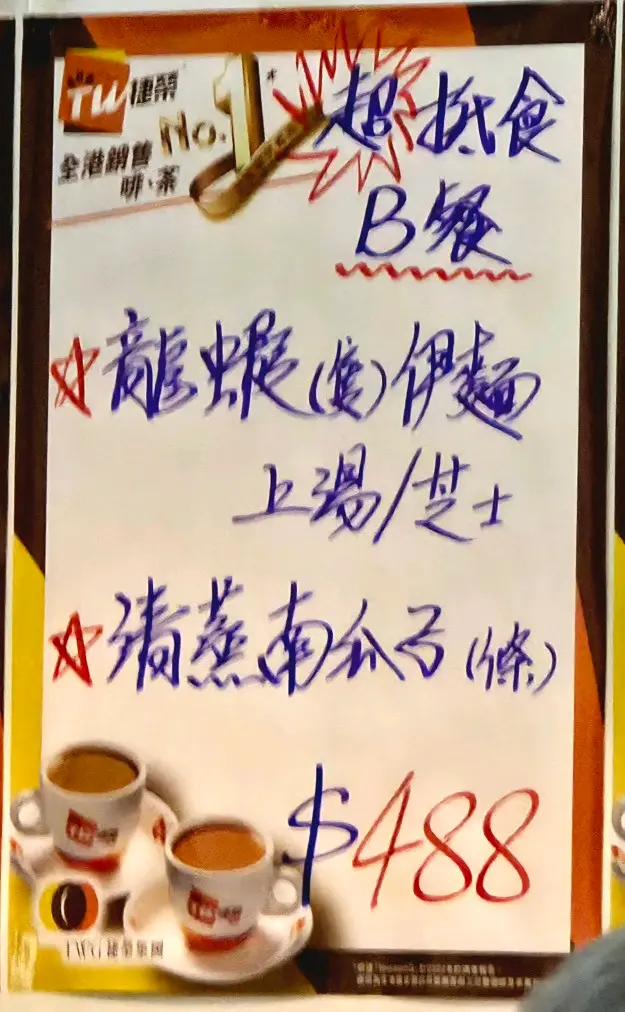 TW捷榮
No.1*
全港銷售
啡、茶
超抵食
B餐
龍蝦(隻)伊麵
上湯/芝士
清蒸南瓜子(條)
$488
TWG 捷榮集團